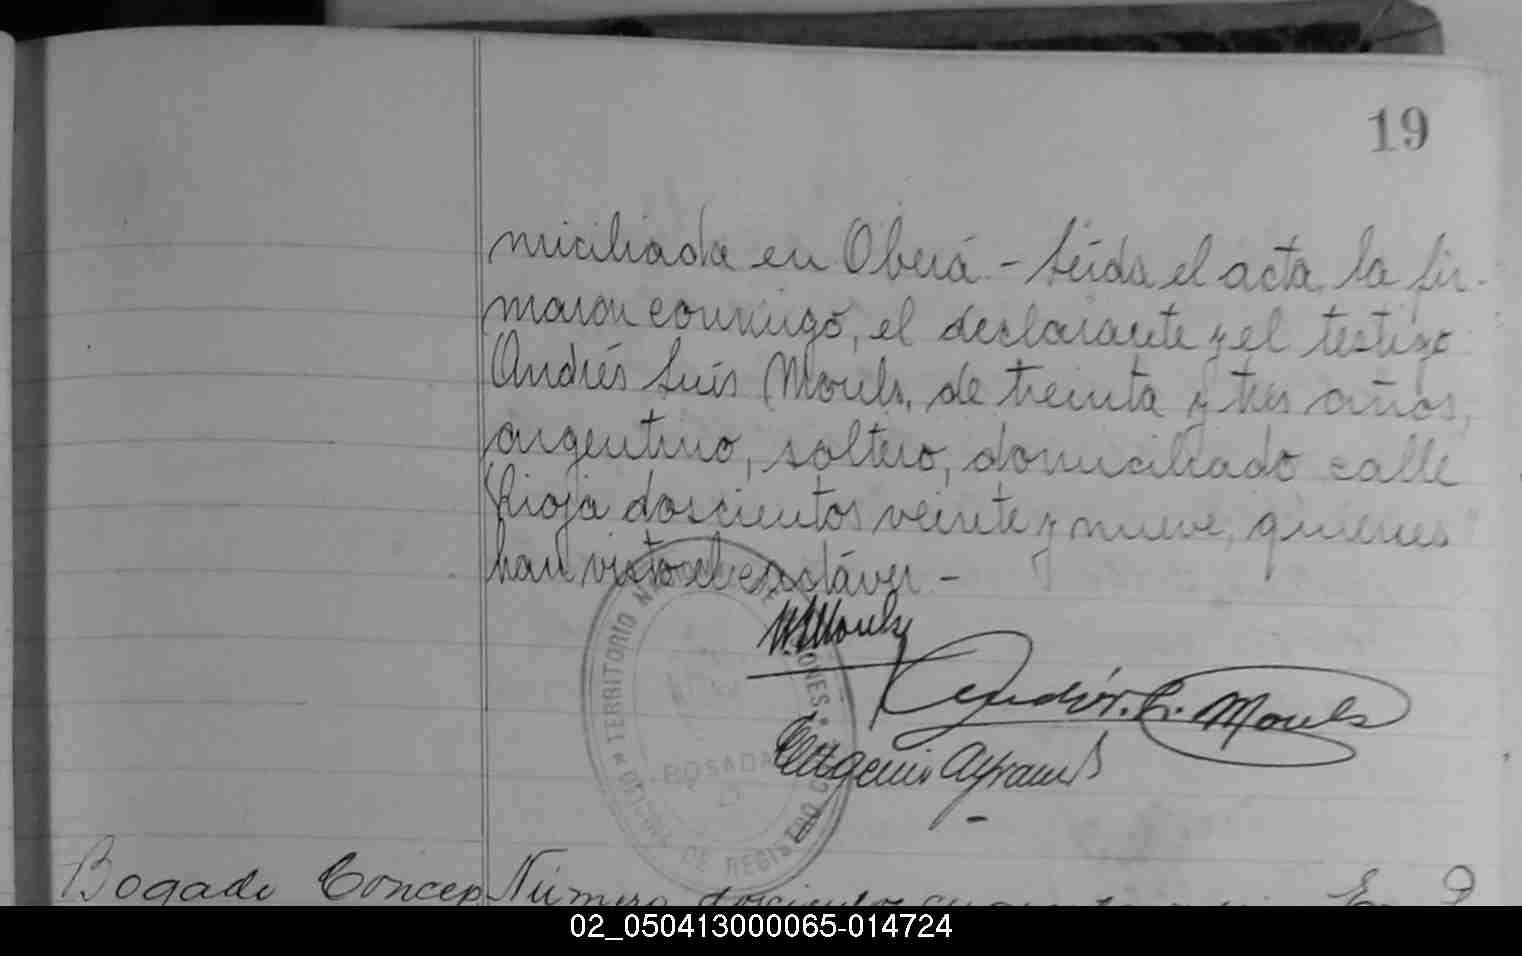 19
miciliada en Oberá - Leída el acta, la fir-
maron conmigo, el declarante y el testigo
Andrés Luis Mouls, de treinta y tres años,
argentino, soltero, domiciliado calle
Rioja doscientos veinte y nueve, quienes
han visto el cadáver -
Mouls
Andrés L. Mouls
Eugenio
TERRITORIO
POSADAS
OFICIAL DE REGISTRO
Bogado Concep Número doscientos
02_050413000065-014724